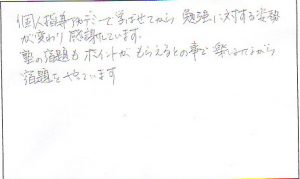 個人指導アカデミーで学ばせてから 勉強に対する姿勢
が変わり 感謝しています.
塾の宿題も ポイントが もらえるとの事で 楽しみながら
宿題をやっています